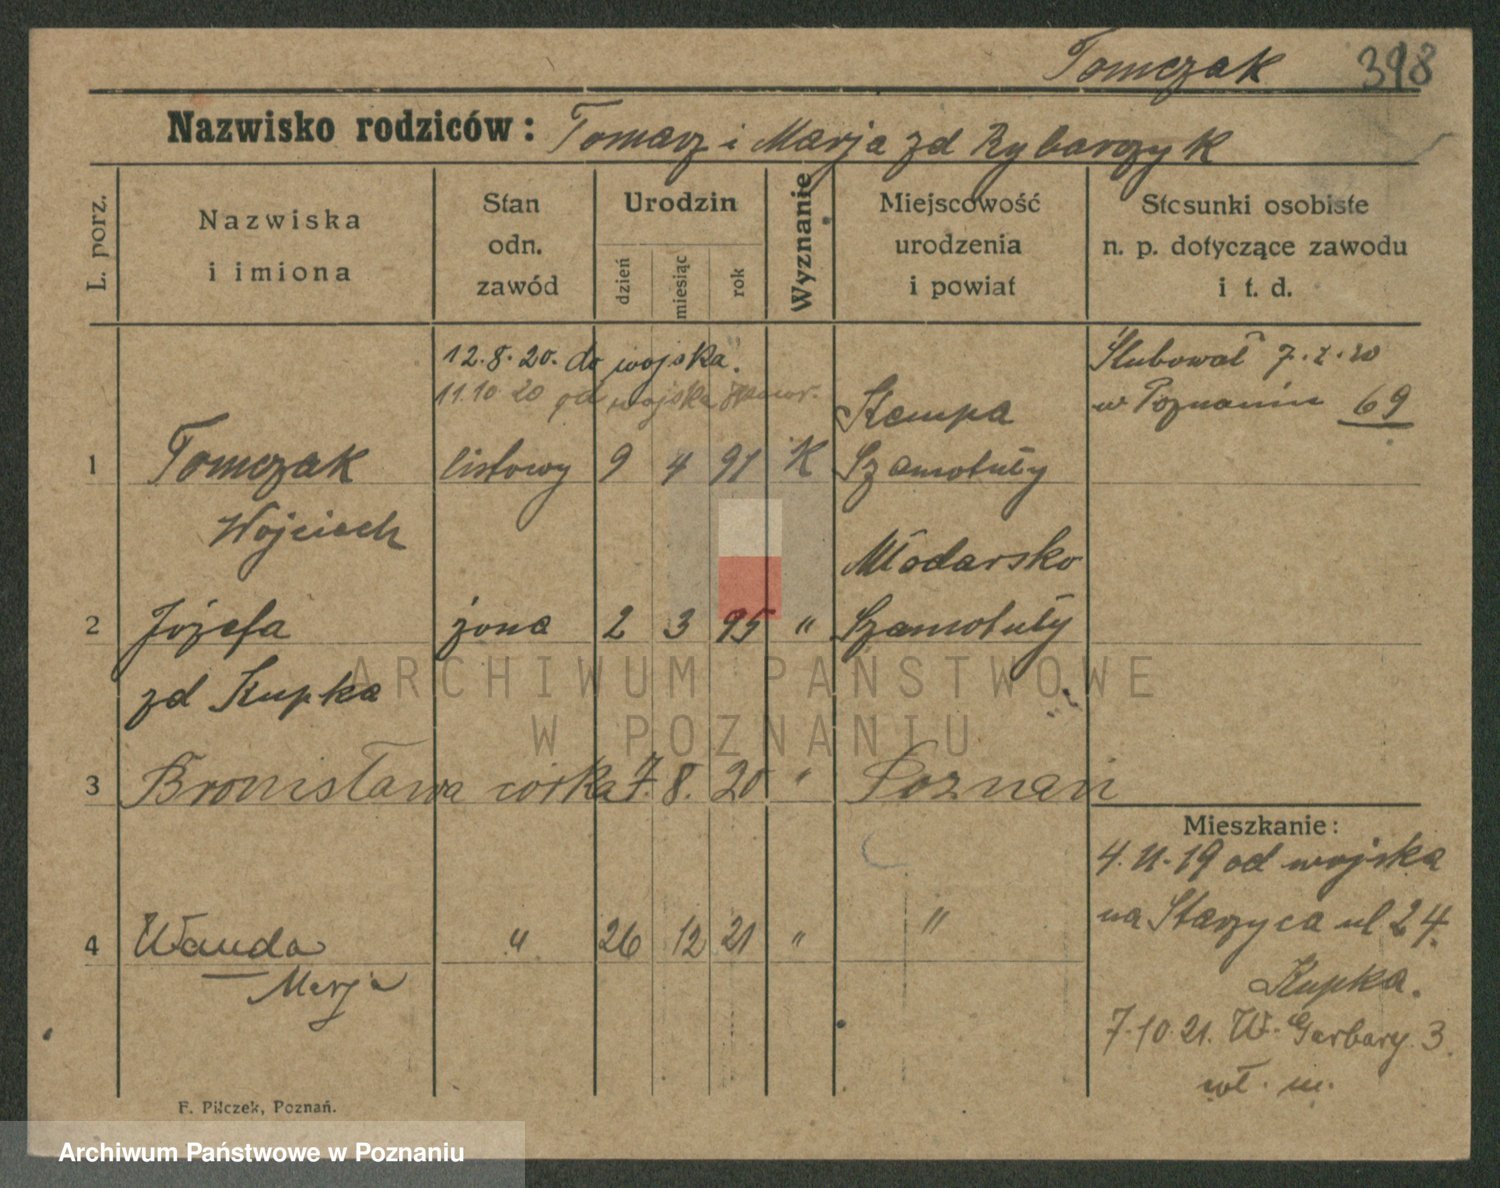 Tomczak 398
Nazwisko rodziców: Tomasz i Marja zd Rybarczyk
L. porz.
Nazwiska
i imiona
Stan
odn.
zawód
Urodzin
dzień
miesiąc
rok
Wyznanie
Miejscowość
urodzenia
i powiat
Stosunki osobiste
n. p. dotyczące zawodu
i t. d.
12.8.20. do wojska.
11.10 20 od wojska
Ślubował 7.X.20
w Poznaniu 69
Kempa
1 Tomczak listowy 9 4 91 K Szamotuły
Wojciech
Młodarsko
2 Józefa żona 2 3 95 " Szamotuły
zd Kupka
3 Bronisława córka 7. 8. 20 " Poznań
Mieszkanie:
4.11.19 od wojska
na Starzyca ul 24.
Kupka.
7.10.21. W. Garbary 3.
wł. m.
4 Wanda " 26 12 21 " "
Marja
F. Pilczek, Poznań.
ARCHIWUM PAŃSTWOWE
W POZNANIU
Archiwum Państwowe w Poznaniu